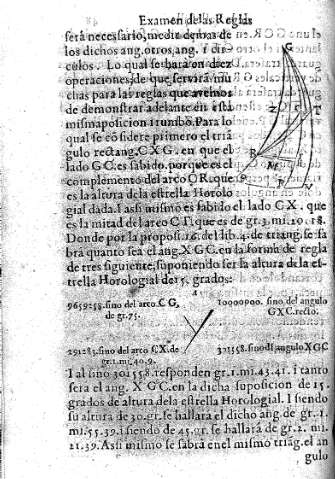 Examen de las Reglas
será necessario, medir demas de
los dichos ang. otros, ang. i cir-
culos. Lo qual se hará en diez
operaciones, de que servirá mu-
chas para las reglas que avemos
de demonstrar adelante en esta
misma posicion i rumbo. Para lo
qual se cósidere primero el triá
gulo rectang. C X G. en que el
lado G C. es sabido, porque es el
complemento del arco C R. que
es la altura de la estrella Horolo
gial dada. I assi mismo es sabido el lado C X. que
es la mitad del arco C T. que es de gr. 3. mi. 20. 18.
Donde por la propos. 16. del lib. 4. de triang. se sa
brá quanto sea el ang. X G C. en la forma de regla
de tres siguiente, suponiendo ser la altura de la es-
trella Horologial de 15. grados:
9659258. sino del arco C G, de gr. 75.
10000000. sino del angulo G X C. recto.
291283. sino del arco C X. de gr. 1. mi. 40. 9.
301558. sino del angulo X G C
I al sino 301558. responden gr. 1. mi. 43. 41. i tanto
sera el ang. X G C. en la dicha suposicion de 15.
grados de altura de la estrella Horologial. I siendo
su altura de 30. gr. se hallara el dicho ang. de gr. 1.
mi. 55. 39. i siendo de 45. gr. se hallará de gr. 2. mi.
21. 39. Assi mismo se sabrá en el mismo triág. el an
gulo
G
Z
C
T
R
M